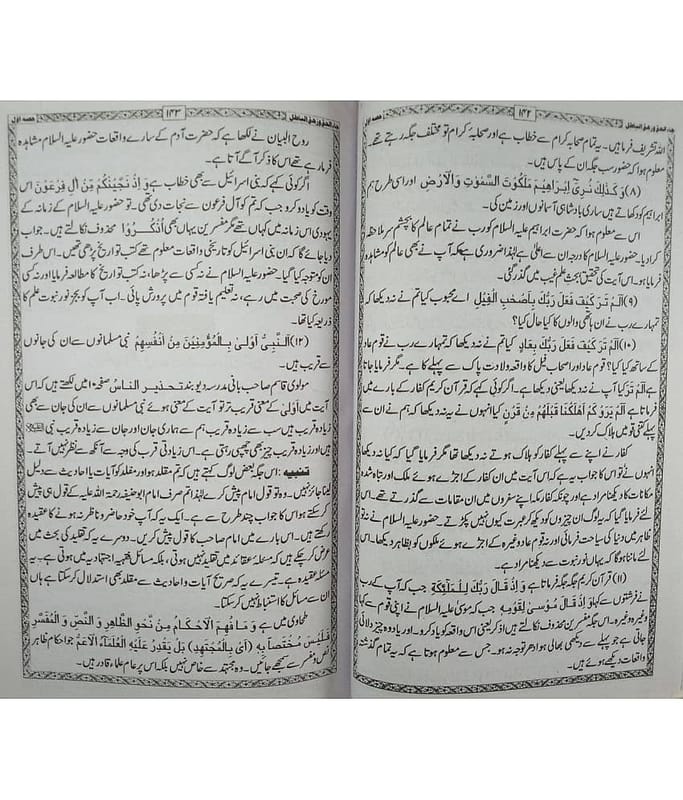 جاء الحق وزھق الباطل ۱۴۲ حصہ اول
اللہ تشریف فرما ہیں۔ یہ تمام صحابہ کرام سے خطاب ہے اور صحابہ کرام تو مختلف جگہ رہتے تھے۔
معلوم ہوا کہ حضور سب جگہ ان کے پاس ہیں۔
(۸) وَكَذٰلِكَ نُرِىْ اِبْرَاهِيْمَ مَلَكُوْتَ السَّمٰوٰتِ وَالْاَرْضِ اور اسی طرح ہم
ابراہیم کو دکھاتے ہیں ساری بادشاہی آسمانوں اور زمین کی۔
اس سے معلوم ہوا کہ حضرت ابراہیم علیہ السلام کو رب نے تمام عالم کا بچشم سر ملاحظہ
کرا دیا۔ حضور علیہ السلام کا درجہ ان سے اعلیٰ ہے لہٰذا ضروری ہے کہ آپ نے بھی عالم کو مشاہدہ
فرمایا ہو۔ اس آیت کی تحقیق بحث علم غیب میں گذر گئی۔
(۹) اَلَمْ تَرَ كَيْفَ فَعَلَ رَبُّكَ بِاَصْحٰبِ الْفِيْلِ اے محبوب کیا تم نے نہ دیکھا کہ
تمہارے رب نے ان ہاتھی والوں کا کیا حال کیا؟
(۱۰) اَلَمْ تَرَ كَيْفَ فَعَلَ رَبُّكَ بِعَادٍ کیا تم نے نہ دیکھا کہ تمہارے رب نے قوم عاد
کے ساتھ کیا کیا؟ قوم عاد اور اصحاب فیل کا واقعہ ولادت پاک سے پہلے کا ہے۔ مگر فرمایا جاتا
ہے اَلَمْ تَرَ کیا آپ نے نہ دیکھا یعنی دیکھا ہے۔ اگر کوئی کہے کہ قرآن کریم کفار کے بارے میں
فرماتا ہے اَلَمْ يَرَوْا كَمْ اَهْلَكْنَا قَبْلَهُمْ مِنْ قَرْنٍ کیا انہوں نے یہ نہ دیکھا کہ ہم نے ان سے
پہلے کتنی قومیں ہلاک کردیں۔
کفار نے اپنے سے پہلے کفار کو ہلاک ہوتے نہ دیکھا تھا مگر فرمایا گیا کہ کیا نہ دیکھا
انہوں نے تو اس کا جواب یہ ہے کہ اس آیت میں ان کفار کے اجڑے ہوئے ملک اور تباہ شدہ
مکانات کا دیکھنا مراد ہے اور چونکہ کفار مکہ اپنے سفروں میں ان مقامات سے گذرتے تھے۔ اس
لئے فرمایا گیا کہ یہ لوگ ان چیزوں کو دیکھ کر عبرت کیوں نہیں پکڑتے۔ حضور علیہ السلام نے نہ تو
ظاہر میں دنیا کی سیاحت فرمائی اور نہ قوم عاد وغیرہ کے اجڑے ہوئے ملکوں کو بظاہر دیکھا۔ اس
لئے ماننا ہوگا کہ یہاں نور نبوت سے دیکھنا مراد ہے۔
(۱۱) قرآن کریم جگہ جگہ فرماتا ہے وَ اِذْ قَالَ رَبُّكَ لِلْمَلٰئِكَةِ جب کہ آپ کے رب
نے فرشتوں سے کہا وَ اِذْ قَالَ مُوْسٰى لِقَوْمِهِ جب کہ موسیٰ علیہ السلام نے اپنی قوم سے کہا
وغیرہ وغیرہ۔ اس جگہ مفسرین محذوف نکالتے ہیں اُذکر یعنی اس واقعہ کو یاد کرو۔ اور یاد وہ چیز دلائی
جاتی ہے جو پہلے سے دیکھی بھالی ہو ادھر توجہ نہ ہو۔ جس سے معلوم ہوتا ہے کہ یہ تمام گذشتہ
واقعات دیکھے ہوئے ہیں۔
جاء الحق وزھق الباطل ۱۴۳ حصہ اول
روح البیان نے لکھا ہے کہ حضرت آدم کے سارے واقعات حضور علیہ السلام مشاہدہ
فرما رہے تھے اس کا ذکر آگے آتا ہے۔
اگر کوئی کہے کہ بنی اسرائیل سے بھی خطاب ہے وَ اِذْ نَجَّيْنٰكُمْ مِنْ اٰلِ فِرْعَوْنَ اس
وقت کو یاد کرو جب کہ تم کو آل فرعون سے نجات دی تھی۔ تو حضور علیہ السلام کے زمانہ کے
یہودی اس زمانہ میں کہاں تھے مگر مفسرین یہاں بھی اُذْكُرُوْا محذوف نکالتے ہیں۔ جواب
دیا جائے گا کہ ان بنی اسرائیل کو تاریخی واقعات معلوم تھے کتب تواریخ پڑھی تھیں۔ اس طرف
ان کو متوجہ کیا گیا۔ حضور علیہ السلام نے نہ کسی سے پڑھا، نہ کتب تواریخ کا مطالعہ فرمایا اور نہ کسی
مورخ کی صحبت میں رہے، نہ تعلیم یافتہ قوم میں پرورش پائی۔ اب آپ کو بجز نور نبوت علم کا
ذریعہ کیا تھا۔
(۱۲) اَلنَّبِىُّ اَوْلٰى بِالْمُؤْمِنِيْنَ مِنْ اَنْفُسِهِمْ نبی مسلمانوں سے ان کی جانوں
سے قریب ہیں۔
مولوی قاسم صاحب بانی مدرسہ دیوبند تحذیر الناس صفحہ ۱۰ میں لکھتے ہیں کہ اس
آیت میں اَوْلٰى کے معنی قریب تر تو آیت کے معنی ہوئے نبی مسلمانوں سے ان کی جان سے بھی
زیادہ قریب ہیں سب سے زیادہ قریب ہم سے ہماری جان اور جان سے زیادہ قریب نبی ﷺ
ہیں اور زیادہ قریب چیز بھی چھپی رہتی ہے۔ اس زیادتی قرب کی وجہ سے آنکھ سے نظر نہیں آتے۔
تنبیہ : اس جگہ بعض لوگ کہتے ہیں کہ تم مقلد ہو اور مقلد کو آیات یا احادیث سے دلیل
لینا جائز نہیں۔ وہ تو قول امام پیش کرے لہٰذا تم صرف امام ابوحنیفہ رحمۃ اللہ علیہ کے قول ہی پیش
کر سکتے ہو اس کا جواب چند طرح سے ہے۔ ایک یہ کہ آپ خود حاضر و ناظر نہ ہونے کا عقیدہ
رکھتے ہیں۔ اس بارے میں امام صاحب کا قول پیش کریں۔ دوسرے یہ کہ تقلید کی بحث میں
عرض کر چکے ہیں کہ مسئلہ عقائد میں تقلید نہیں ہوتی، بلکہ مسائل فقہیہ اجتہادیہ میں ہوتی ہے۔ یہ
مسئلہ عقیدہ ہے۔ تیسرے یہ کہ صریح آیات و احادیث سے مقلد بھی استدلال کر سکتا ہے ہاں
ان سے مسائل کا استنباط نہیں کر سکتا۔
طحاوی میں ہے وَ مَا فُهِمَ الْاَحْكَامُ مِنْ نَحْوِ الظَّاهِرِ وَ النَّصِّ وَ الْمُفَسَّرِ
فَلَيْسَ مُخْتَصًّا بِهِ (اَىْ بِالْمُجْتَهِدِ) بَلْ يَقْدِرُ عَلَيْهِ الْعُلَمَآءُ الْاَعَمُّ جو احکام ظاہر
نص و مفسر سے سمجھے جائیں۔ وہ مجتہد سے خاص نہیں بلکہ اس پر عام علماء قادر ہیں۔